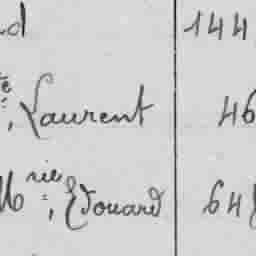 d 144
te, Laurent 46
Mrie, Edouard 648